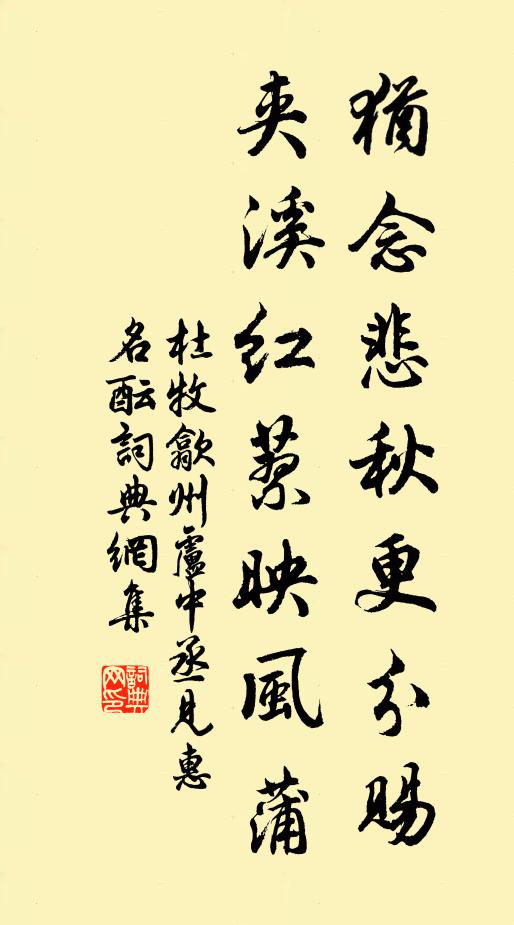 猶念悲秋更分賜
夾溪紅蓼映風蒲
杜牧歙州盧中丞見惠
名酝詞典網集
詞典
网印